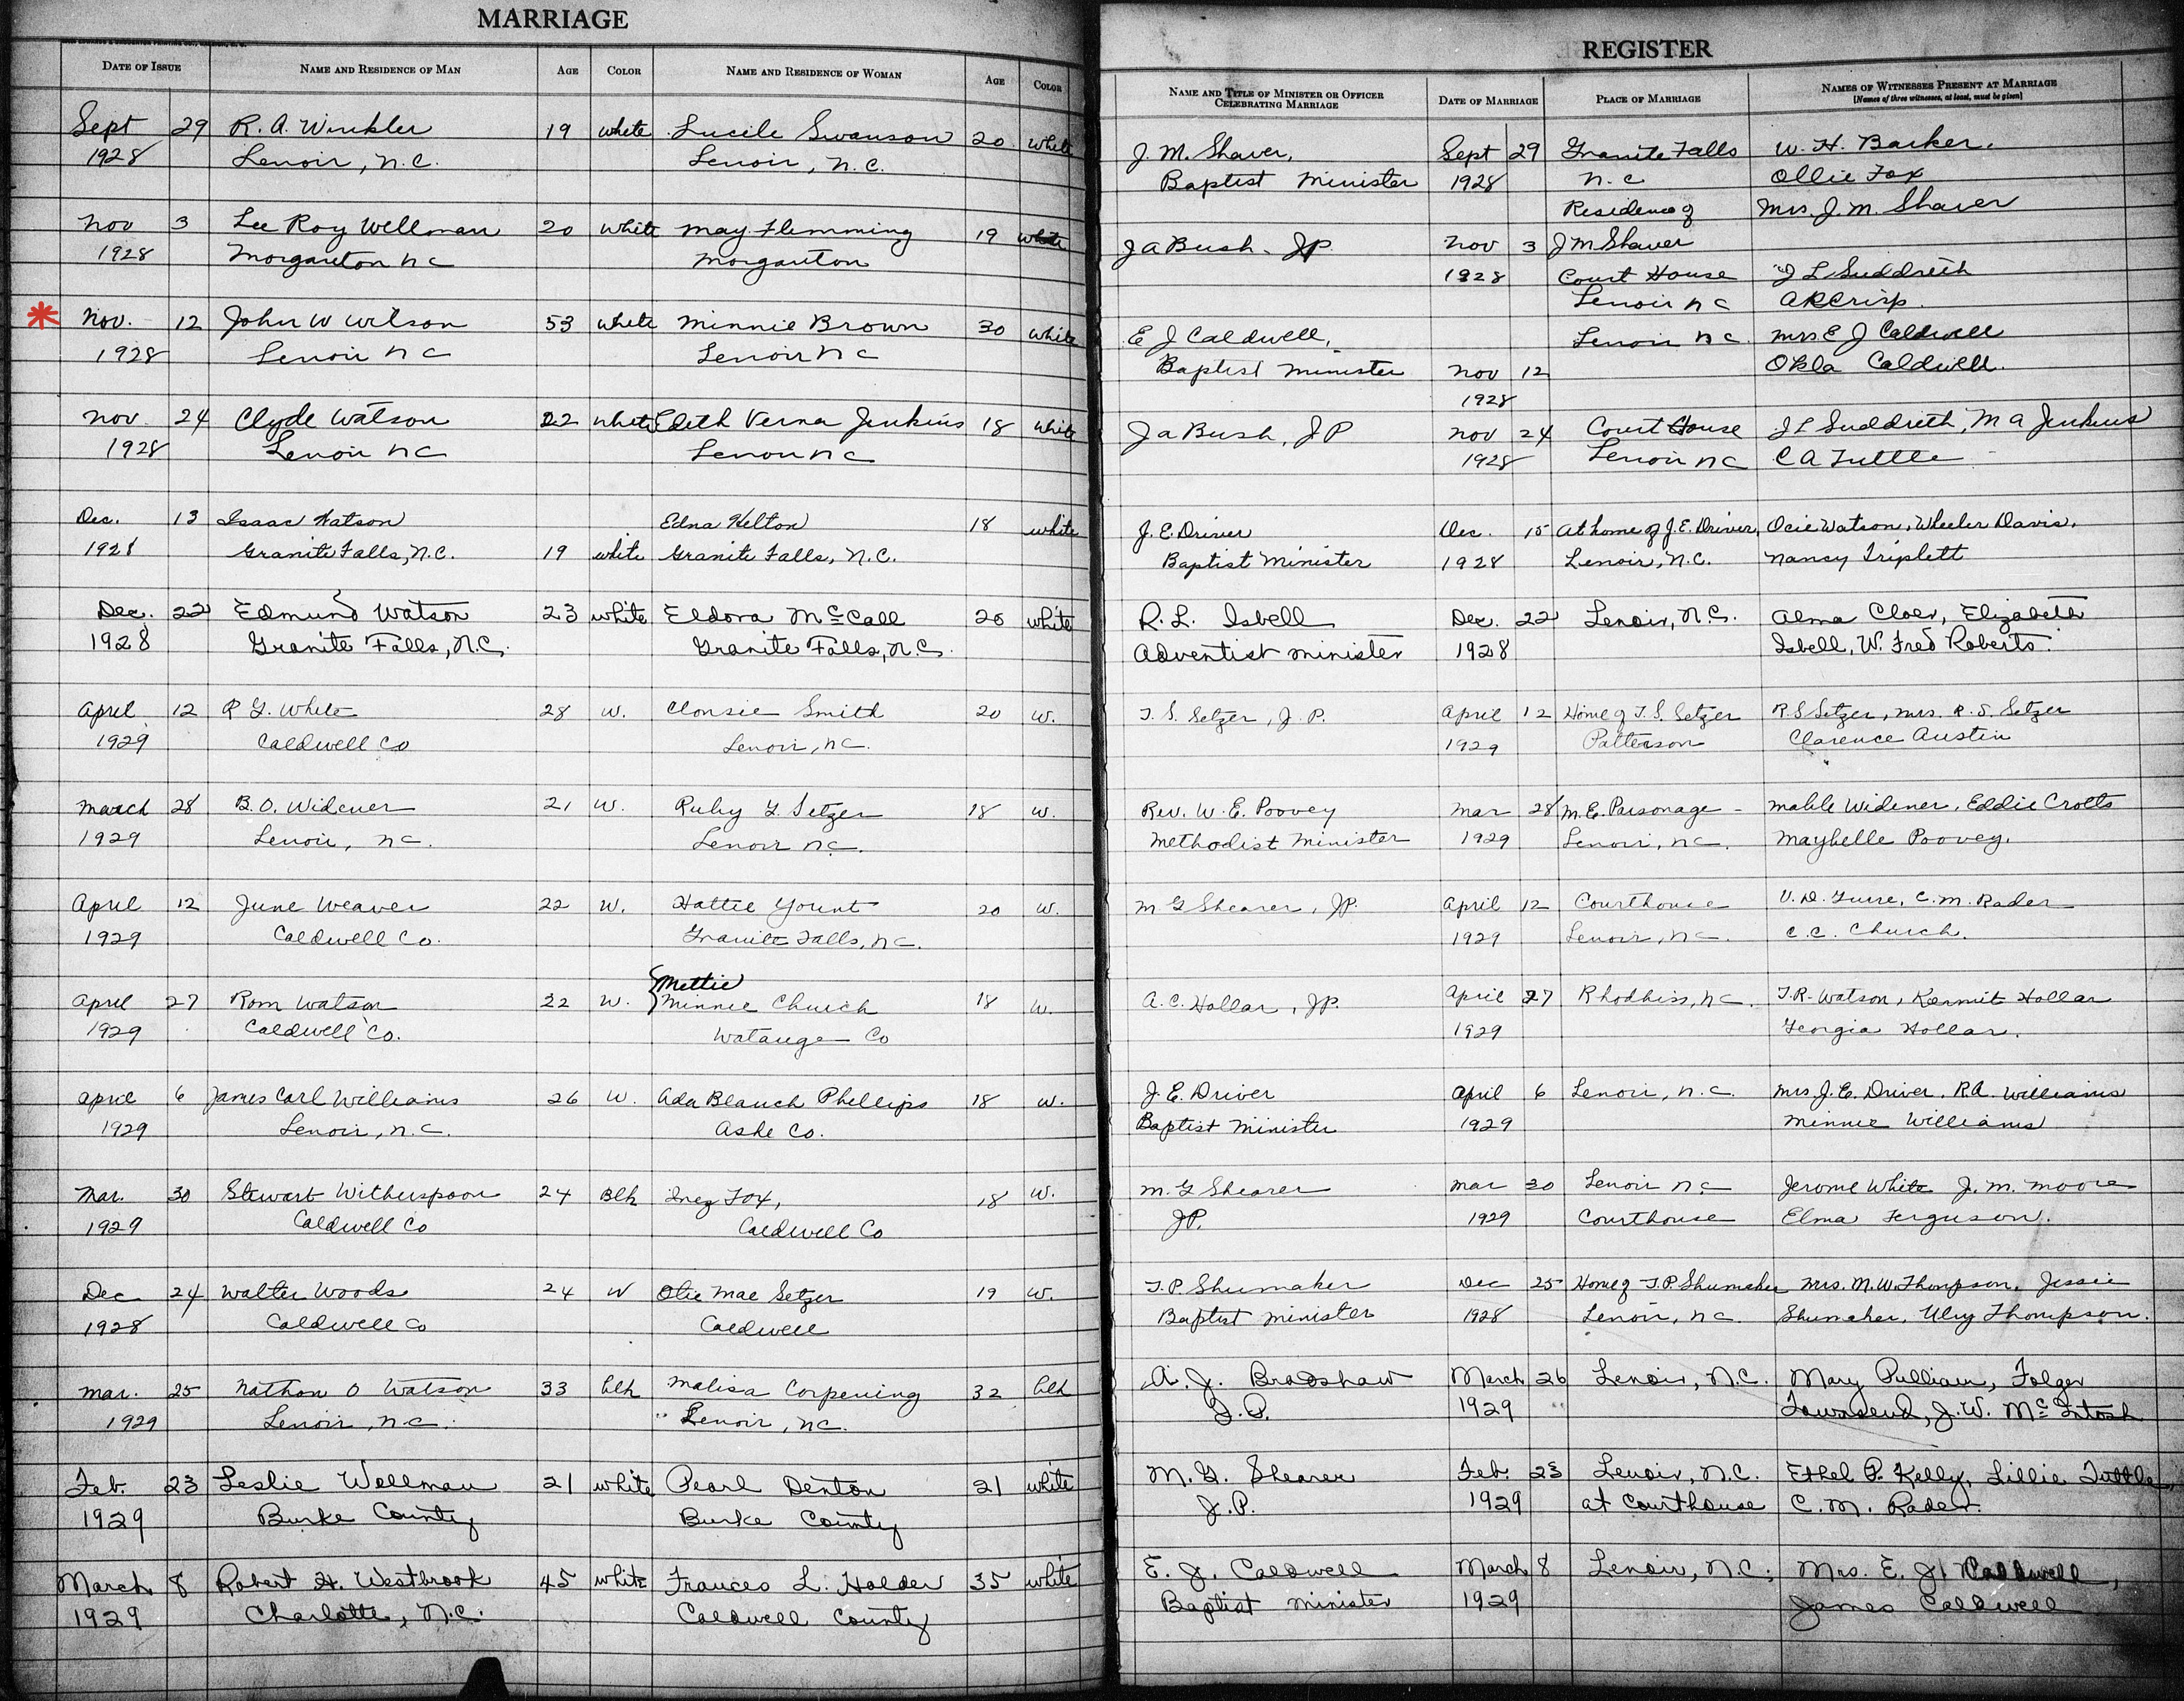 MARRIAGE
DATE OF ISSUE NAME AND RESIDENCE OF MAN AGE COLOR NAME AND RESIDENCE OF WOMAN AGE COLOR
Sept 29 R. A. Winkler 19 white Lucile Swanson 20 white
1928 Lenoir, N.C. Lenoir, N.C.
Nov 3 Lee Roy Wellman 20 white May Flemming 19 white
1928 Morganton NC Morganton
* Nov. 12 John W Wilson 53 white Minnie Brown 30 white
1928 Lenoir NC Lenoir NC
Nov. 24 Clyde Watson 22 white Edith Verna Jenkins 18 white
1928 Lenoir NC Lenoir NC
Dec. 13 Isaac Watson Edna Helton 18 white
1928 Granite Falls, N.C. 19 white Granite Falls, N.C.
Dec. 22 Edmund Watson 23 white Eldora McCall 20 white
1928 Granite Falls, N.C. Granite Falls, N.C.
April 12 R G. White 28 W. Clonsie Smith 20 W.
1929 Caldwell Co Lenoir, NC.
March 28 B. O. Widener 21 W. Ruby G. Setzer 18 W.
1929 Lenoir, NC. Lenoir NC.
April 12 June Weaver 22 W. Hattie Yount 20 W.
1929 Caldwell Co. Granite Falls, NC.
Mettie
April 27 Rom Watson 22 W. Minnie Church 18 W.
1929 Caldwell Co. Watauga Co
April 6 James Carl Williams 26 W. Ada Blanch Phillips 18 W.
1929 Lenoir, N.C. Ashe Co.
Mar. 30 Stewart Witherspoon 24 Blk Inez Fox, 18 W.
1929 Caldwell Co Caldwell Co
Dec 24 Walter Woods 24 W Otie Mae Setzer 19 W.
1928 Caldwell Co Caldwell
Mar. 25 Nathan O Watson 33 blk Malisa Corpening 32 blk
1929 Lenoir, N.C. Lenoir, NC.
Feb. 23 Leslie Wellman 21 white Pearl Denton 21 white
1929 Burke County Burke County
March 8 Robert H. Westbrook 45 white Frances L. Holder 35 white
1929 Charlotte, N.C. Caldwell County
REGISTER
NAME AND TITLE OF MINISTER OR OFFICER CELEBRATING MARRIAGE DATE OF MARRIAGE PLACE OF MARRIAGE NAMES OF WITNESSES PRESENT AT MARRIAGE
[Names of three witnesses, at least, must be given]
J. M. Shaver, Sept 29 Granite Falls W. H. Barker.
Baptist Minister 1928 N.C Ollie Fox
Residence of Mrs. J. M. Shaver
J A Bush - JP Nov 3 J M Shaver
1928 Court House J L Suddreth
Lenoir NC A R Crisp.
E J Caldwell, Lenoir NC. Mrs E J Caldwell
Baptist Minister Nov 12 Okla Caldwell.
1928
J A Bush, JP Nov 24 Court House J L Suddreth, M A Jenkins
1928 Lenoir NC C A Tuttle
J. E. Driver Dec. 15 At home of J. E. Driver, Ocie Watson, Wheeler Davis,
Baptist Minister 1928 Lenoir, N.C. Nancy Triplett
R. L. Isbell Dec. 22 Lenoir, N.C. Alma Cloer, Elizabeth
Adventist minister 1928 Isbell, W. Fred Roberts.
T. S. Setzer, J.P. April 12 Home of T. S. Setzer R. S Setzer, Mrs. R. S. Setzer
1929 Patterson Clarence Austin
Rev. W. E. Poovey Mar 28 M. E. Parsonage - Mable Widener, Eddie Crotts
Methodist Minister 1929 Lenoir, NC. Maybelle Poovey.
M G Shearer, JP. April 12 Courthouse V. D. Guire, C. M. Rader
1929 Lenoir, NC. C. C. Church.
A. C. Hollar, JP. April 27 Rhodhiss, NC. T. R. Watson, Kermit Hollar
1929 Georgia Hollar.
J. E. Driver April 6 Lenoir, N.C. Mrs. J. E. Driver, R. A. Williams
Baptist Minister 1929 Minnie Williams
M. G Shearer Mar 30 Lenoir NC Jerome White J. M. Moore
JP. 1929 Courthouse Elma Ferguson.
T. P Shumaker Dec 25 Home of T. P. Shumaker Mrs. M. W. Thompson, Jessie
Baptist minister 1928 Lenoir, NC. Shumaker, Ulry Thompson.
A. J. Bradshaw March 26 Lenoir, N.C. Mary Pulliam, Folger
J.P. 1929 Townsend, J. W. McIntosh
M. G. Shearer Feb. 23 Lenoir, N.C. Ethel P. Kelly, Lillie Tuttle,
J.P. 1929 at Courthouse C. M. Rader.
E. J. Caldwell March 8 Lenoir, N.C. Mrs. E. J. Caldwell,
Baptist minister 1929 James Caldwell